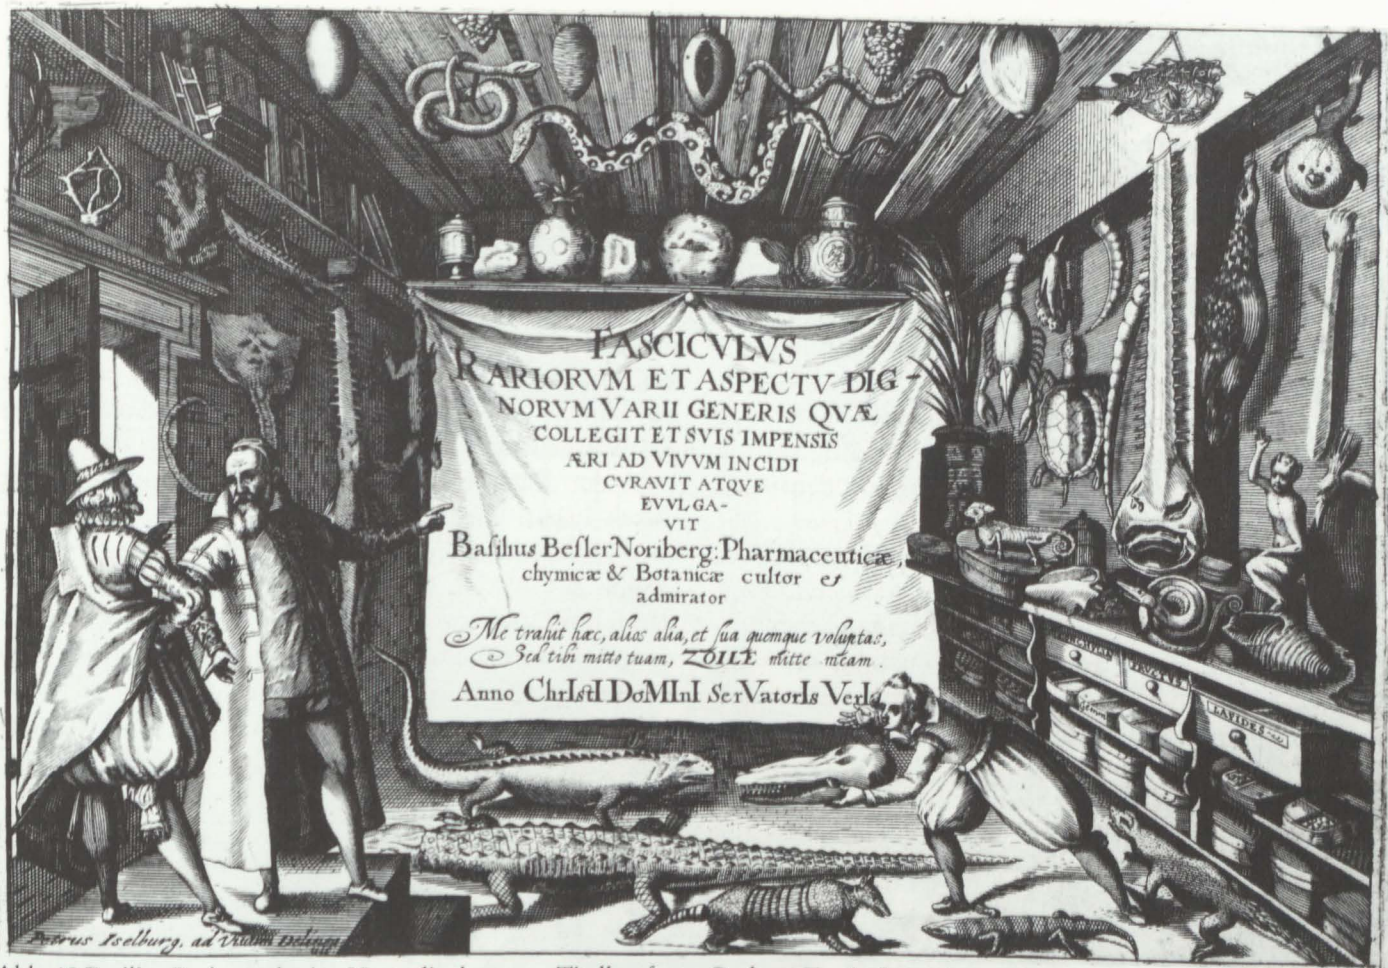 FASCICVLVS
RARIORVM ET ASPECTV DIG-
NORVM VARII GENERIS QVÆ
COLLEGIT ET SVIS IMPENSIS
ÆRI AD VIVVM INCIDI
CVRAVIT ATQVE
EVVLGA-
VIT
Basilius Besler Noriberg: Pharmaceuticæ,
chymicæ & Botanicæ cultor et
admirator
Me trahit hæc, alios alia, et sua quemque voluptas,
Sed tibi mitto tuam, ZOILE mitte meam.
Anno ChrIstI DoMInI SerVatorIs VerI
LAPIDES
Petrus Iselburg. ad Vivum Deline